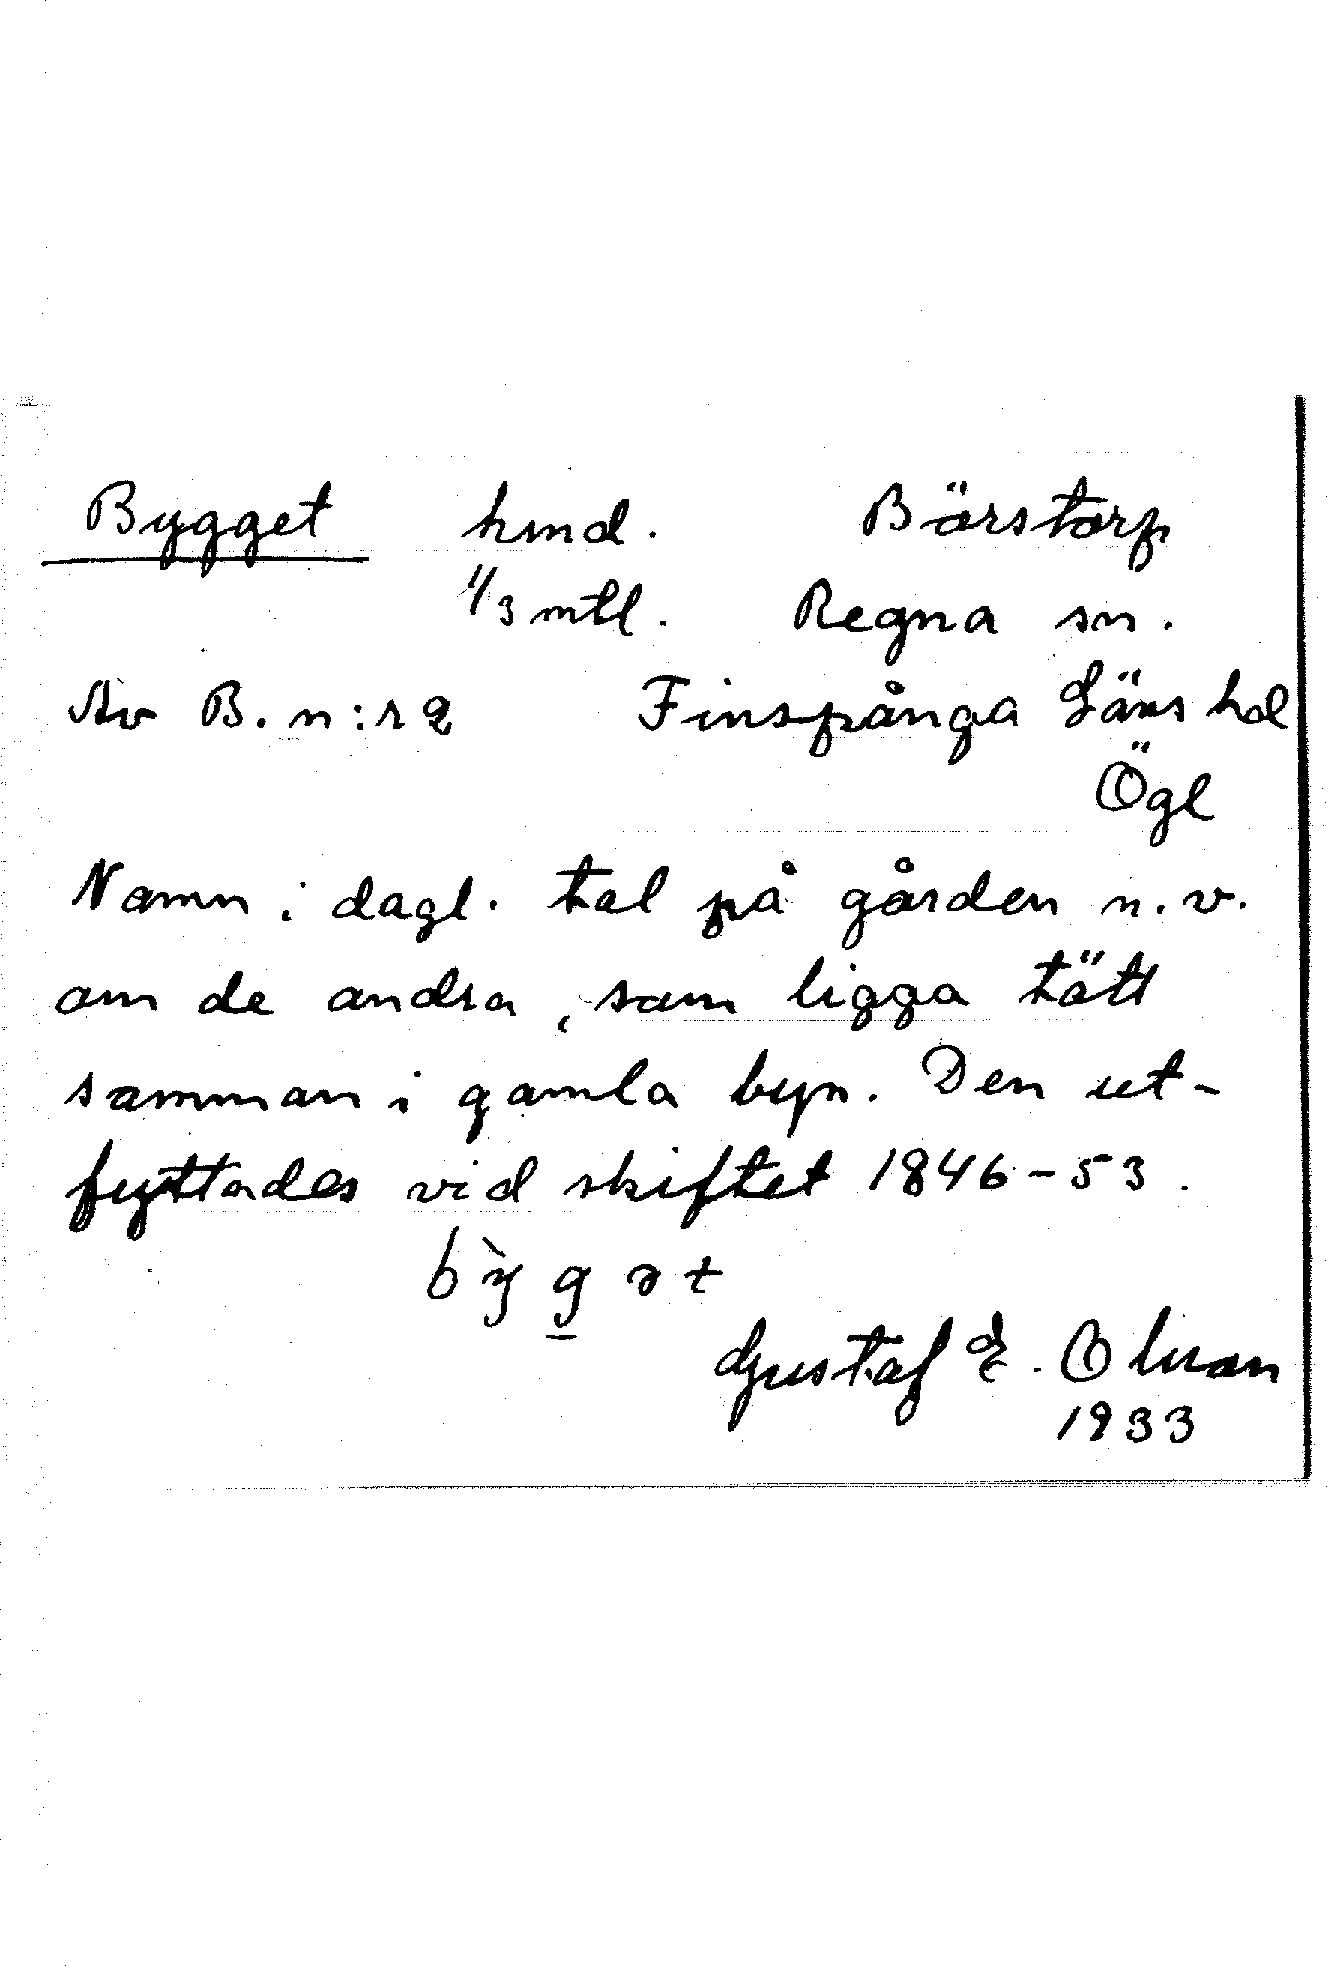 Bygget hmd. Börstorp
1/3 mtl. Regna sn.
Av B. n:r 2 Finspånga Läns hd
Ögl
Namn i dagl. tal på gården n.v.
om de andra, som ligga tätt
samman i gamla byn. Den ut-
flyttades vid skiftet 1846-53.
bỳgət
Gustaf E. Olsson
1933